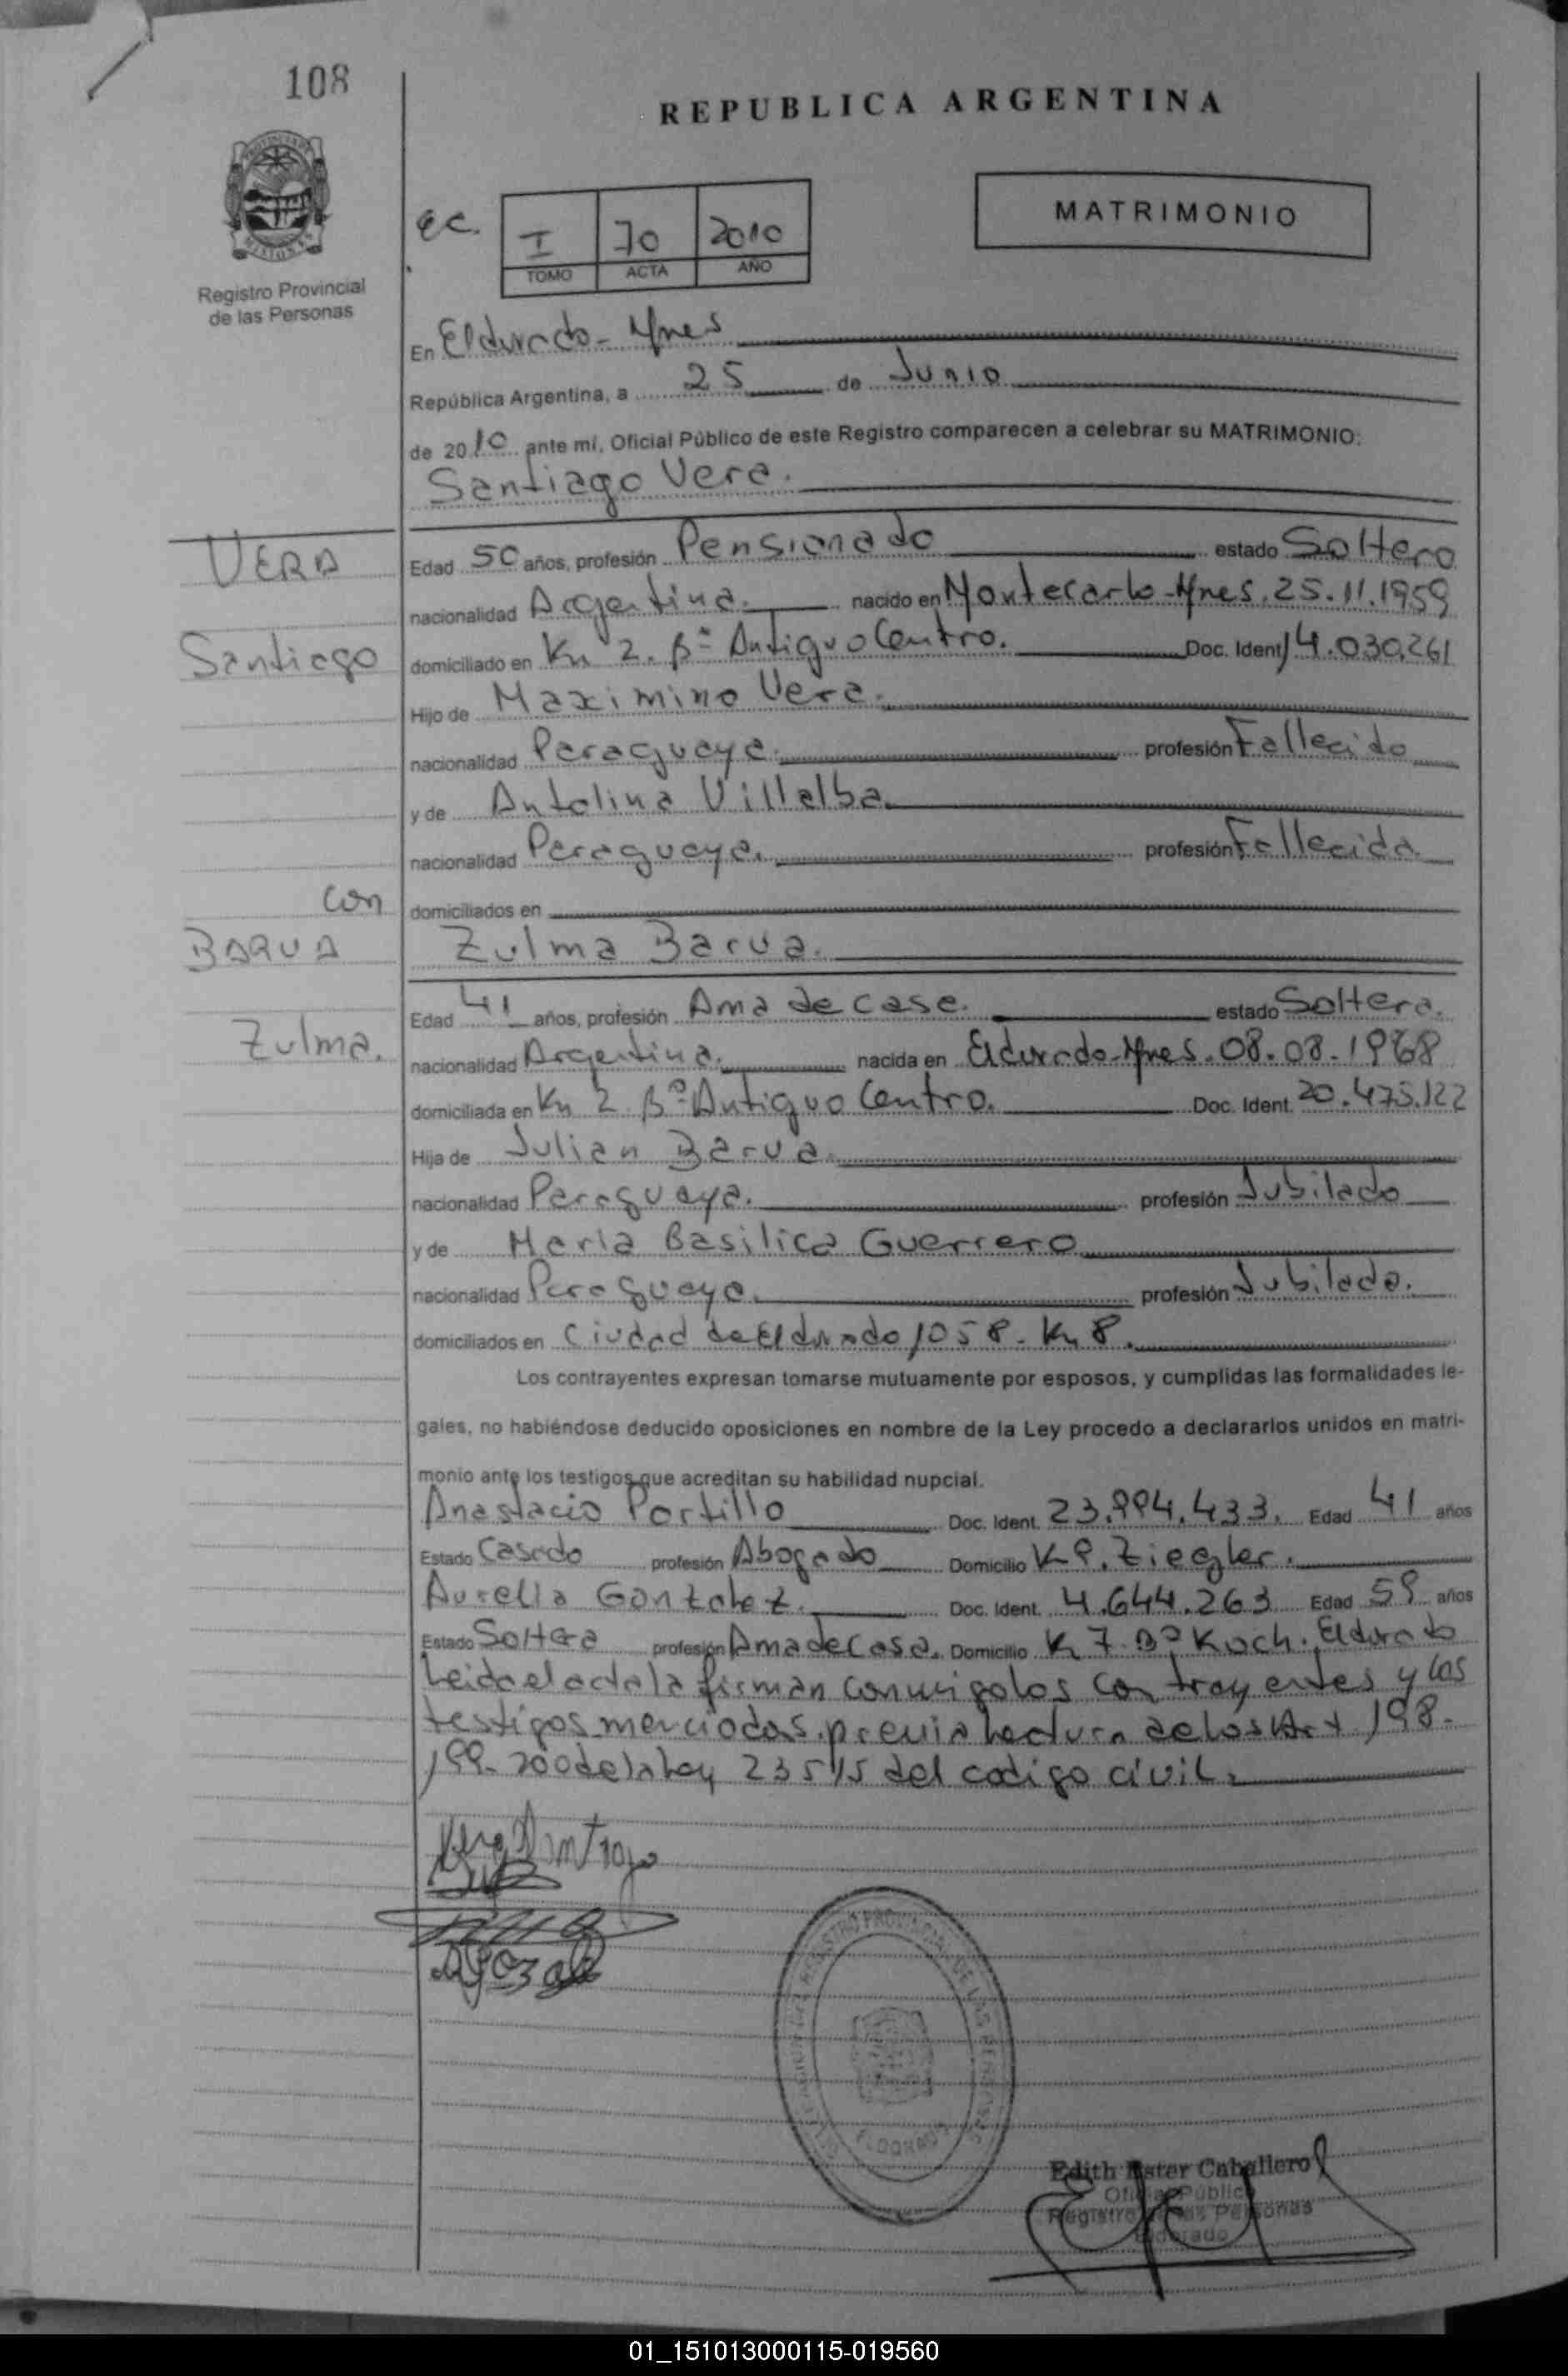 108
REPUBLICA ARGENTINA
MATRIMONIO
ec.
I 70 2010
TOMO ACTA AÑO
Registro Provincial
de las Personas
En Eldorado - Mnes
República Argentina, a 25 de Junio
de 2010 ante mí, Oficial Público de este Registro comparecen a celebrar su MATRIMONIO:
Santiago Vera.
VERA
Edad 50 años, profesión Pensionado estado Soltero
nacionalidad Argentina. nacido en Montecarlo-Mnes. 25.11.1959
Santiago
domiciliado en Km 2. Bº Antiguo Centro. Doc. Ident 14.030.261
Hijo de Maximino Vera.
nacionalidad Paraguaya. profesión Fallecido
y de Antolina Villalba.
nacionalidad Paraguaya. profesión Fallecida
con
domiciliados en
BARUA
Zulma Barua.
Edad 41 años, profesión Ama de casa. estado Soltera.
Zulma.
nacionalidad Argentina. nacida en Eldorado-Mnes. 08.08.1968
domiciliada en Km 2 Bº Antiguo Centro. Doc. Ident. 20.475.122
Hija de Julian Barua.
nacionalidad Paraguaya. profesión Jubilado
y de Maria Basilica Guerrero
nacionalidad Paraguaya. profesión Jubilada.
domiciliados en Ciudad de Eldorado 1058 - Km 8.
Los contrayentes expresan tomarse mutuamente por esposos, y cumplidas las formalidades le-
gales, no habiéndose deducido oposiciones en nombre de la Ley procedo a declararlos unidos en matri-
monio ante los testigos que acreditan su habilidad nupcial.
Anastacio Portillo Doc. Ident. 23.994.433. Edad 41 años
Estado Casado profesión Abogado Domicilio K 9. Ziegler.
Aurelia Gonzalez. Doc. Ident. 4.644.263 Edad 59 años
Estado Soltera profesión Ama de Casa. Domicilio K 7. Bº Koch. Eldorado
Leida el acta la firman conmigo los contrayentes y los
testigos menciodos. previa lectura de los Art 198-
199-200 de la ley 23515 del codigo civil.
Vera Santiago
REGISTRO PROVINCIAL DE LAS PERSONAS
ELDORADO
Edith Ester Caballero
Oficial Público
Registro de las Personas
Eldorado
01_151013000115-019560